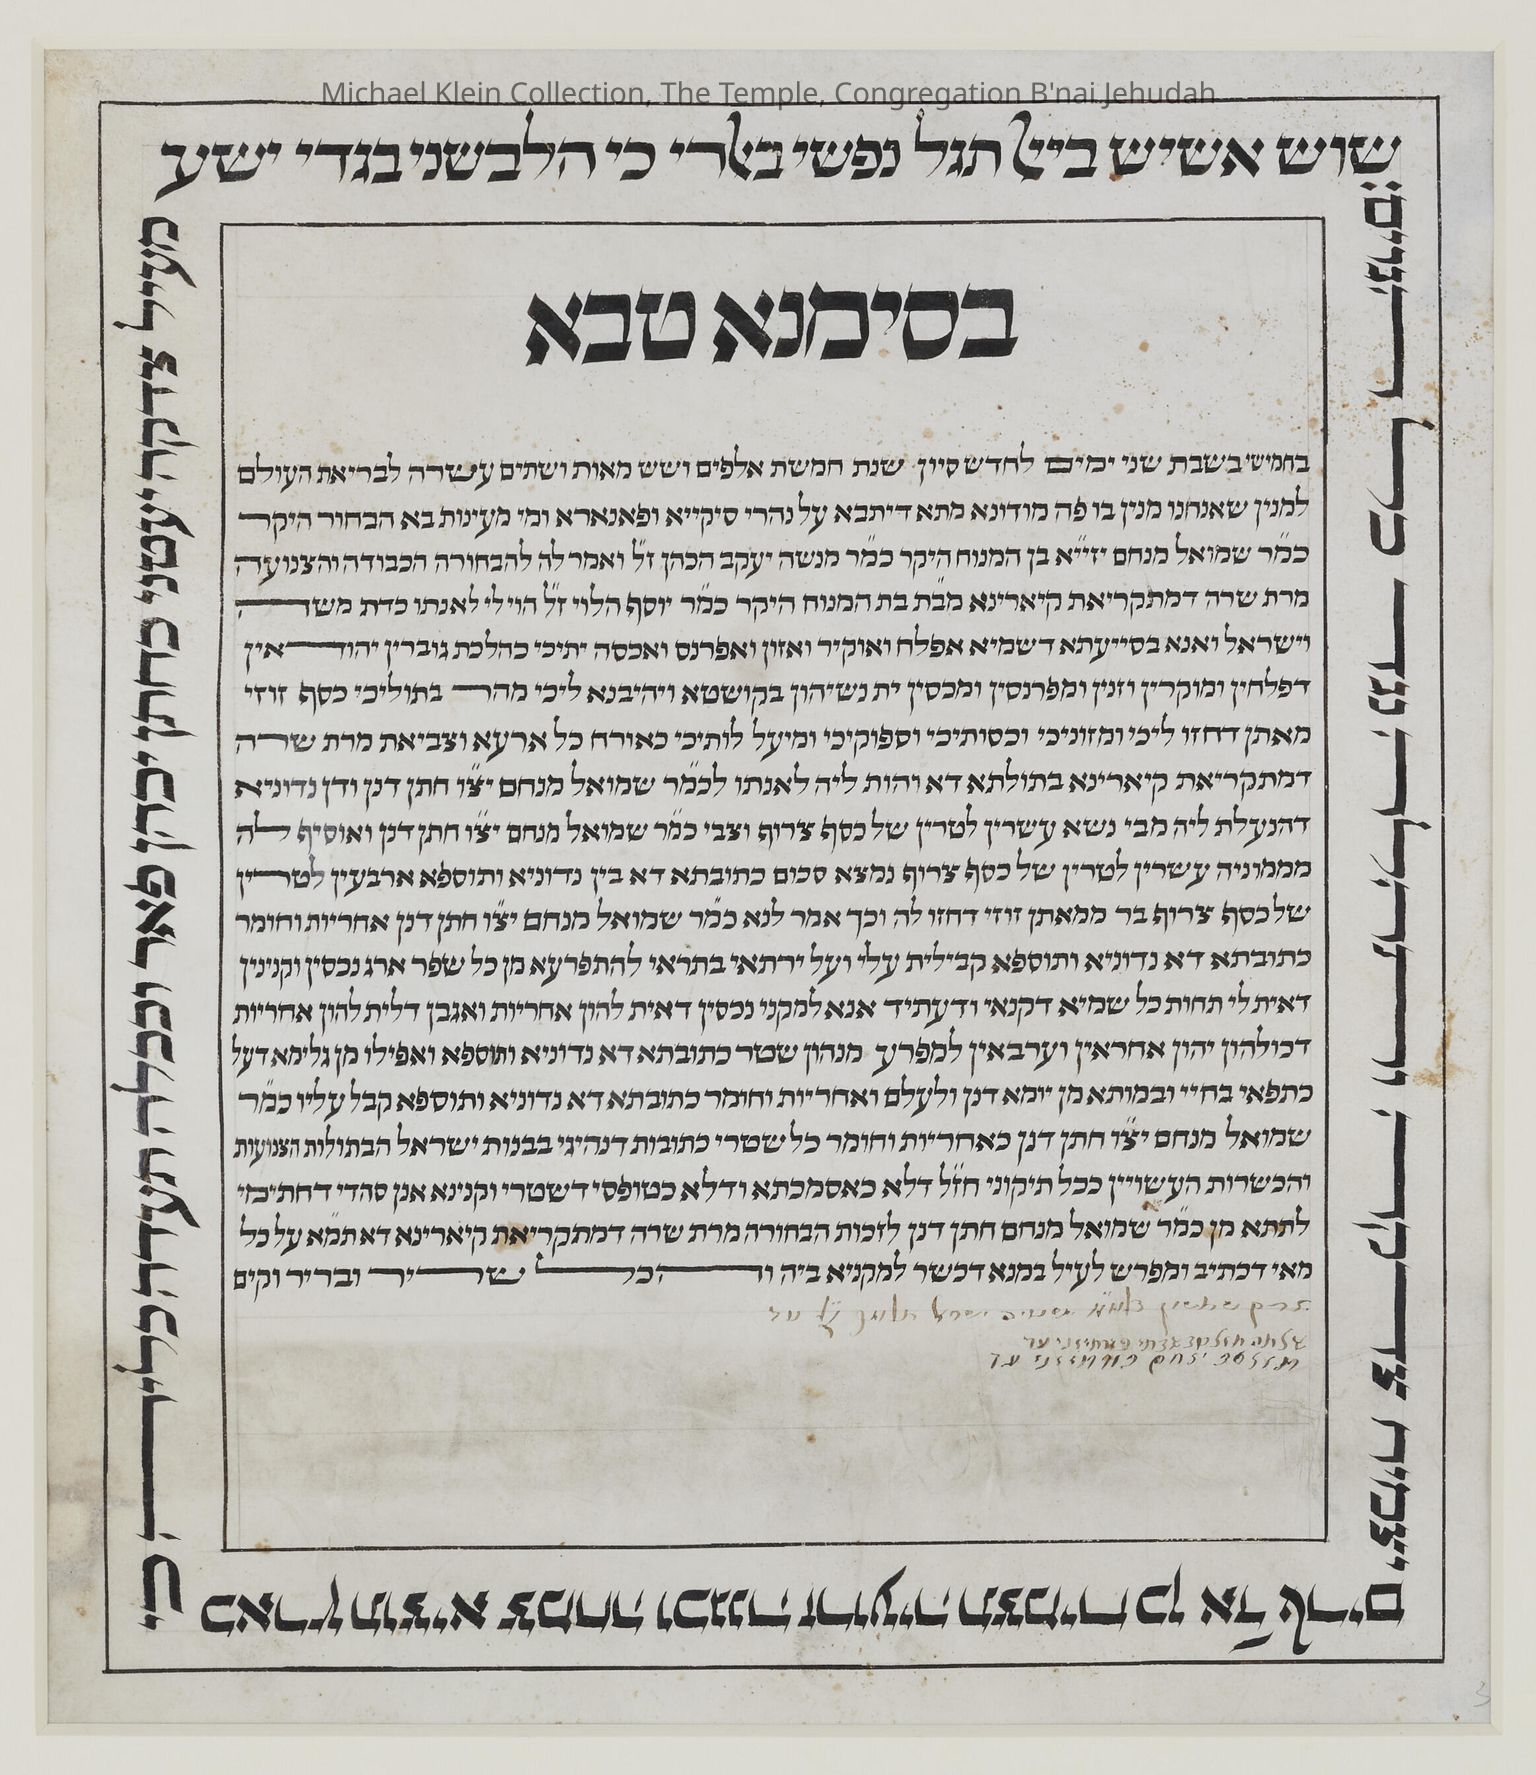 Michael Klein Collection, The Temple, Congregation B'nai Jehudah
שוש אשיש בייﭏ תגל נפשי בﭏרי כי הלבשני בגדי ישע
מעיל צדקה יעטני כחתן יכהן פאר וככלה תעדה כליה: כי
כארץ תוציא צמחה וכגנה זרועיה תצמיח כן אד' ﭏהים
יצמיח צדקה ותהלה נגד כל הגוים:
בסימנא טבא
בחמישי בשבת שני ימים לחדש סיון שנת חמשת אלפים ושש מאות ושתים עשרה לבריאת העולם
למנין שאנחנו מנין בו פה מודונא מתא דיתבא על נהרי סיקייא ופאנארא ומי מעינות בא הבחור היקר
כמ״ר שמואל מנחם יזי״א בן המנוח היקר כמ״ר מנשה יעקב הכהן ז״ל ואמר לה להבחורה הכבודה והצנועה
מרת שרה דמתקריאת קיארינא מב״ת בת המנוח היקר כמ״ר יוסף הלוי ז״ל הוילי לאנתו כדת משה
וישראל ואנא בסייעתא דשמיא אפלח ואוקיר ואזון ואפרנס ואכסה יתיכי כהלכת גוברין יהודאין
דפלחין ומוקרין וזנין ומפרנסין ומכסין ית נשיהון בקושטא ויהיבנא ליכי מהר בתוליכי כסף זוזי
מאתן דחזו ליכי ומזוניכי וכסותיכי וספוקיכי ומיעל לותיכי כאורח כל ארעא וצביאת מרת שרה
דמתקריאת קיארינא בתולתא דא והות ליה לאנתו לכמ״ר שמואל מנחם יצ״ו חתן דנן ודן נדוניא
דהנעלת ליה מבי נשא עשרין לטרין של כסף צרוף וצבי כמ״ר שמואל מנחם יצ״ו חתן דנן ואוסיף לה
מממוניה עשרין לטרין של כסף צרוף נמצא סכום כתובתא דא בין נדוניא ותוספא ארבעין לטרין
של כסף צרוף בר ממאתן זוזי דחזו לה וכך אמר לנא כמ״ר שמואל מנחם יצ״ו חתן דנן אחריות וחומר
כתובתא דא נדוניא ותוספא קבילית עלי ועל ירתאי בתראי להתפרעא מן כל שפר ארג נכסין וקנינין
דאית לי תחות כל שמיא דקנאי ודעתיד אנא למקני נכסין דאית להון אחריות ואגבן דלית להון אחריות
דכולהון יהון אחראין וערבאין למפרע מנהון שטר כתובתא דא נדוניא ותוספא ואפילו מן גלימא דעל
כתפאי בחיי ובמותא מן יומא דנן ולעלם ואחריות וחומר כתובתא דא נדוניא ותוספא קבל עליו כמ״ר
שמואל מנחם יצ״ו חתן דנן כאחריות וחומר כל שטרי כתובות דנהיגי בבנות ישראל הבתולות הצנועות
והכשרות העשויין ככל תיקוני חז״ל דלא כאסמכתא ודלא כטופסי דשטרי וקנינא אנן סהדי דחתימי
לתתא מן כמ״ר שמואל מנחם חתן דנן לזכות הבחורה מרת שרה דמתקריאת קיארינא דא תמ״א על כל
מאי דכתיב ומפרש לעיל במנא דכשר למקניא ביה והכל שריר ובריר וקים
עד
עד
עד